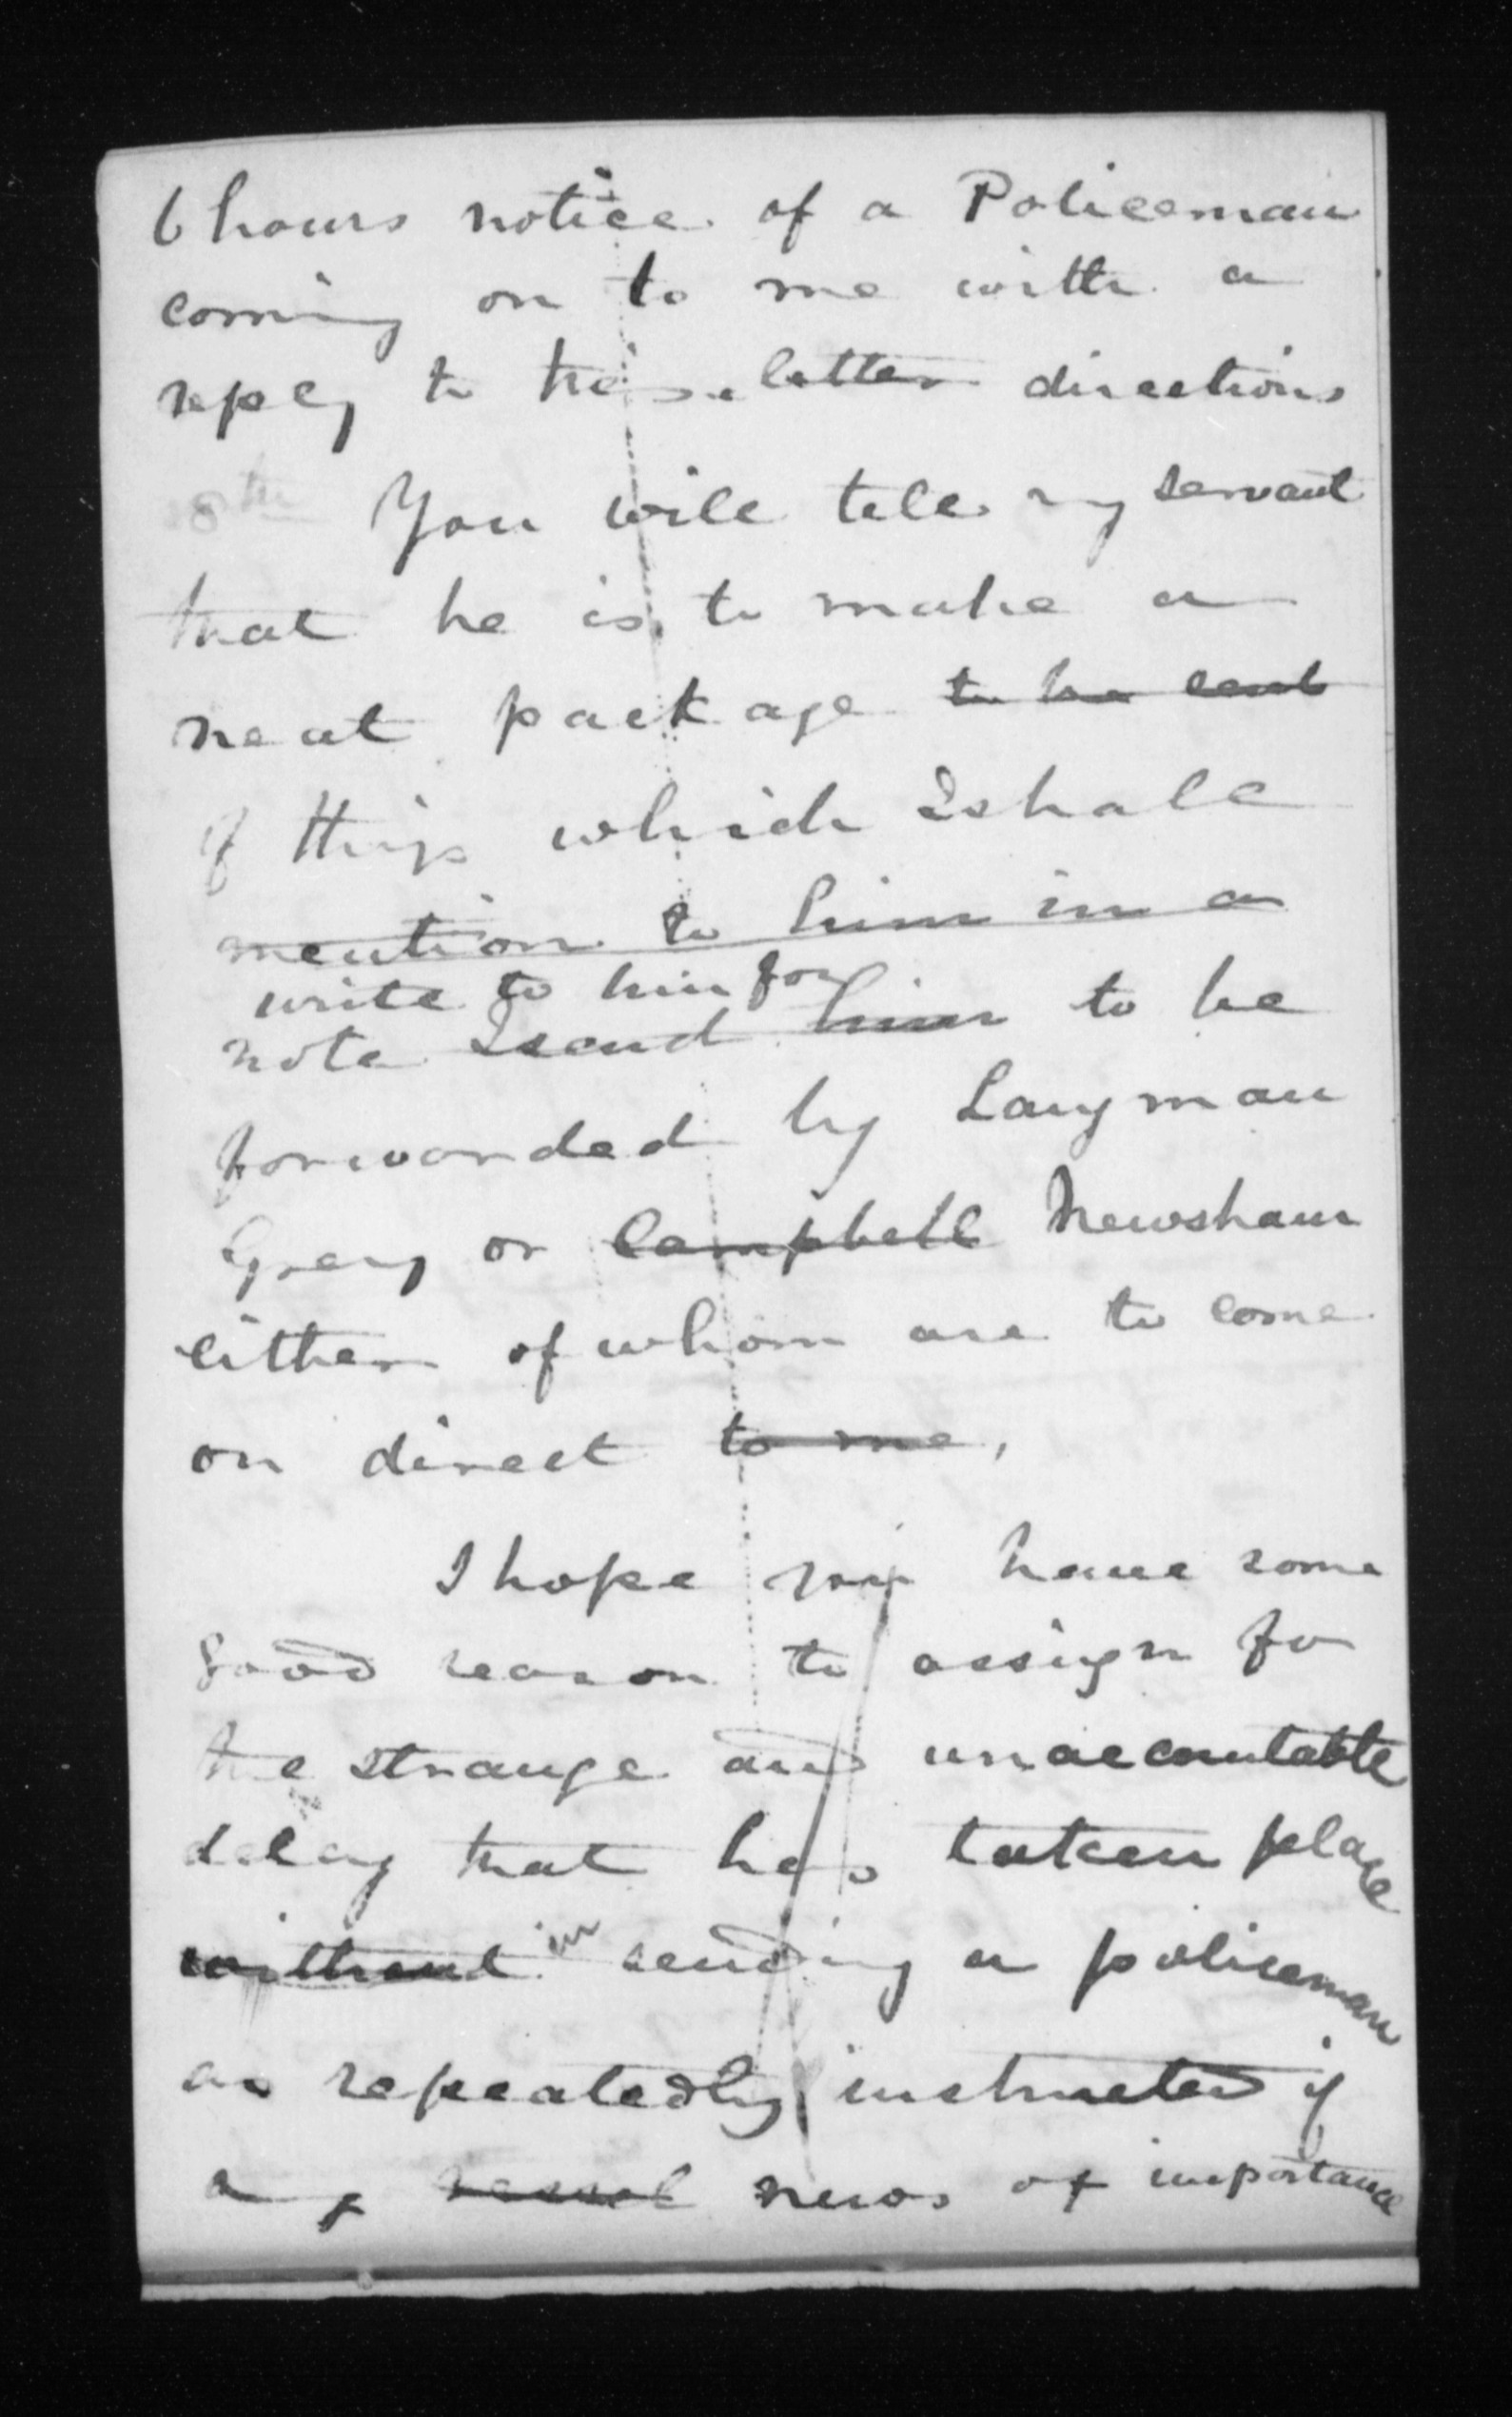 6 hours notice of a Policeman
coming on to me with a
reply to these letter directions
8th You will tell my servant
that he is to make a
neat package to be sent
of things which I shall
mention to him in a
write to him for
note I send him to be
forwarded by Langman
Grey or Campbell Newsham
either of whom are to come
on direct to me,
I hope you have some
good reason to assign for
the strange and unaccountable
delay that has taken place
without in sending a policeman
as repeatedly instructed if
any vessel news of importance